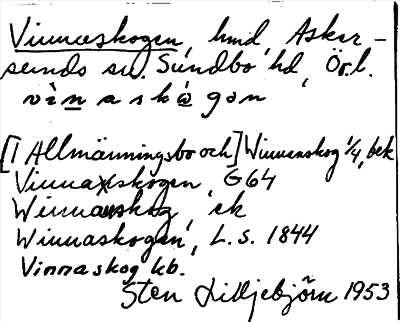 Vinnaskogen, hmd, Asker-
sunds sn. Sundbo hd, Ör.l.
vìnaskò̱gən
[I Allmänningsbo och] Winnenskog 1/4, bek
Vinnaskogen, G64
Winnanskog, ek
Winnaskogen, L.S. 1844
Vinnaskog kb.
Sten Lilljebjörn 1953